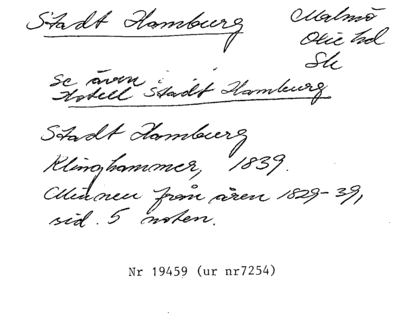 Stadt Hamburg
Malmö
Oxie hd
Sk
Se även
Hotell Stadt Hamburg
Stadt Hamburg
Klinghammer, 1839.
Minnen från åren 1829-39,
sid. 5 noten.
Nr 19459 (ur nr7254)